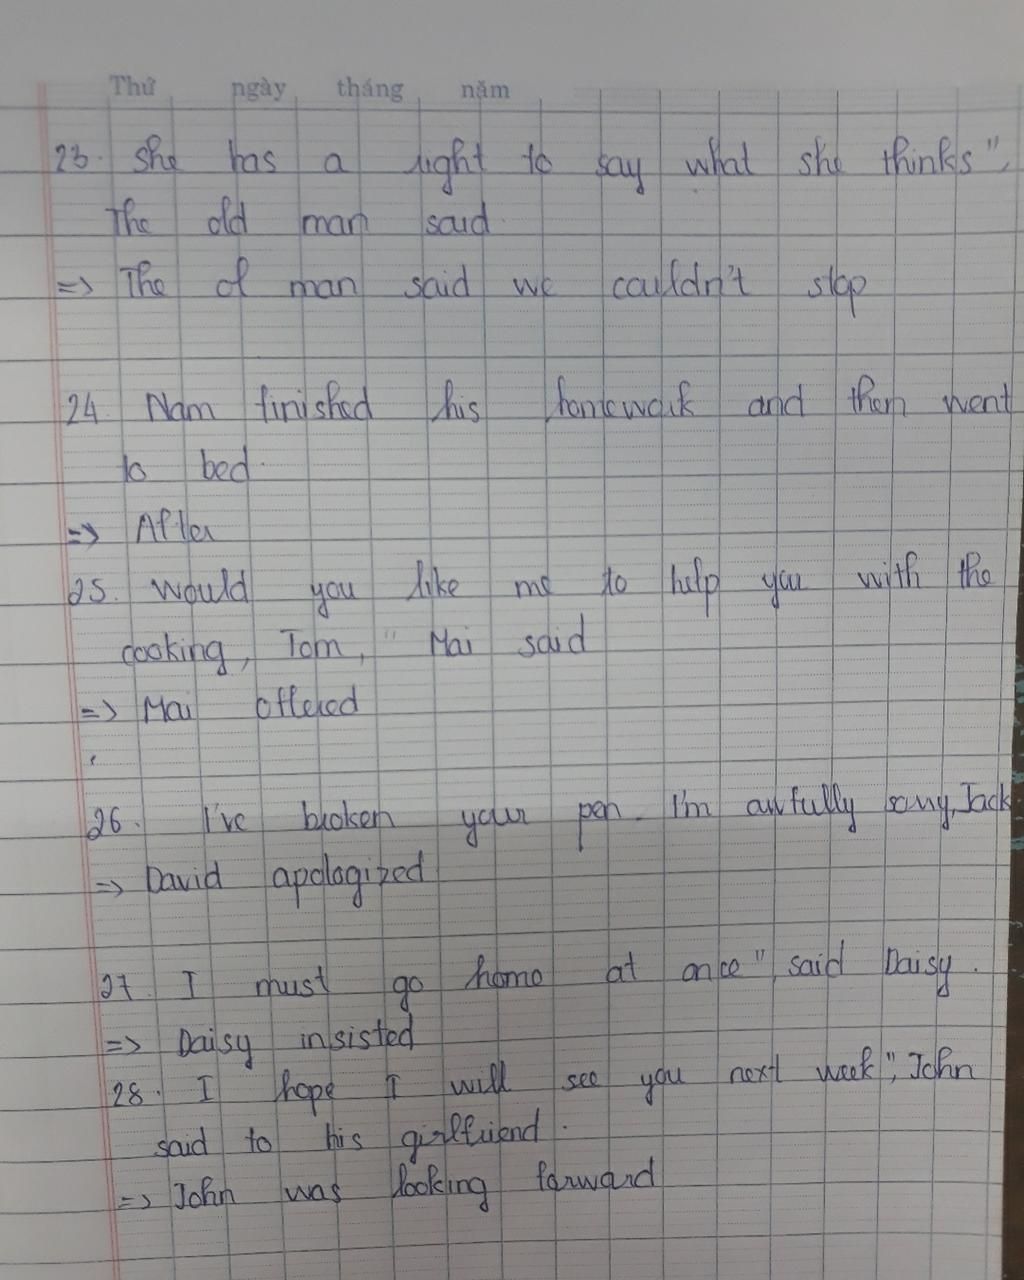 Thứ ngày tháng năm
23. she has a right to say what she thinks",
The old man said.
=> The of man said we couldn't stop
24. Nam finished his homework and then went
to bed.
=> After
25. Would you like me to help you with the
cooking, Tom, " Mai said
=> Mai offered
26. I've broken your pen. I'm awfully sorry, Jack
=> David apologized
27. I must go home at once", said Daisy.
=> Daisy insisted
28. I hope I will see you next week", John
said to his girlfriend.
=> John was looking forward